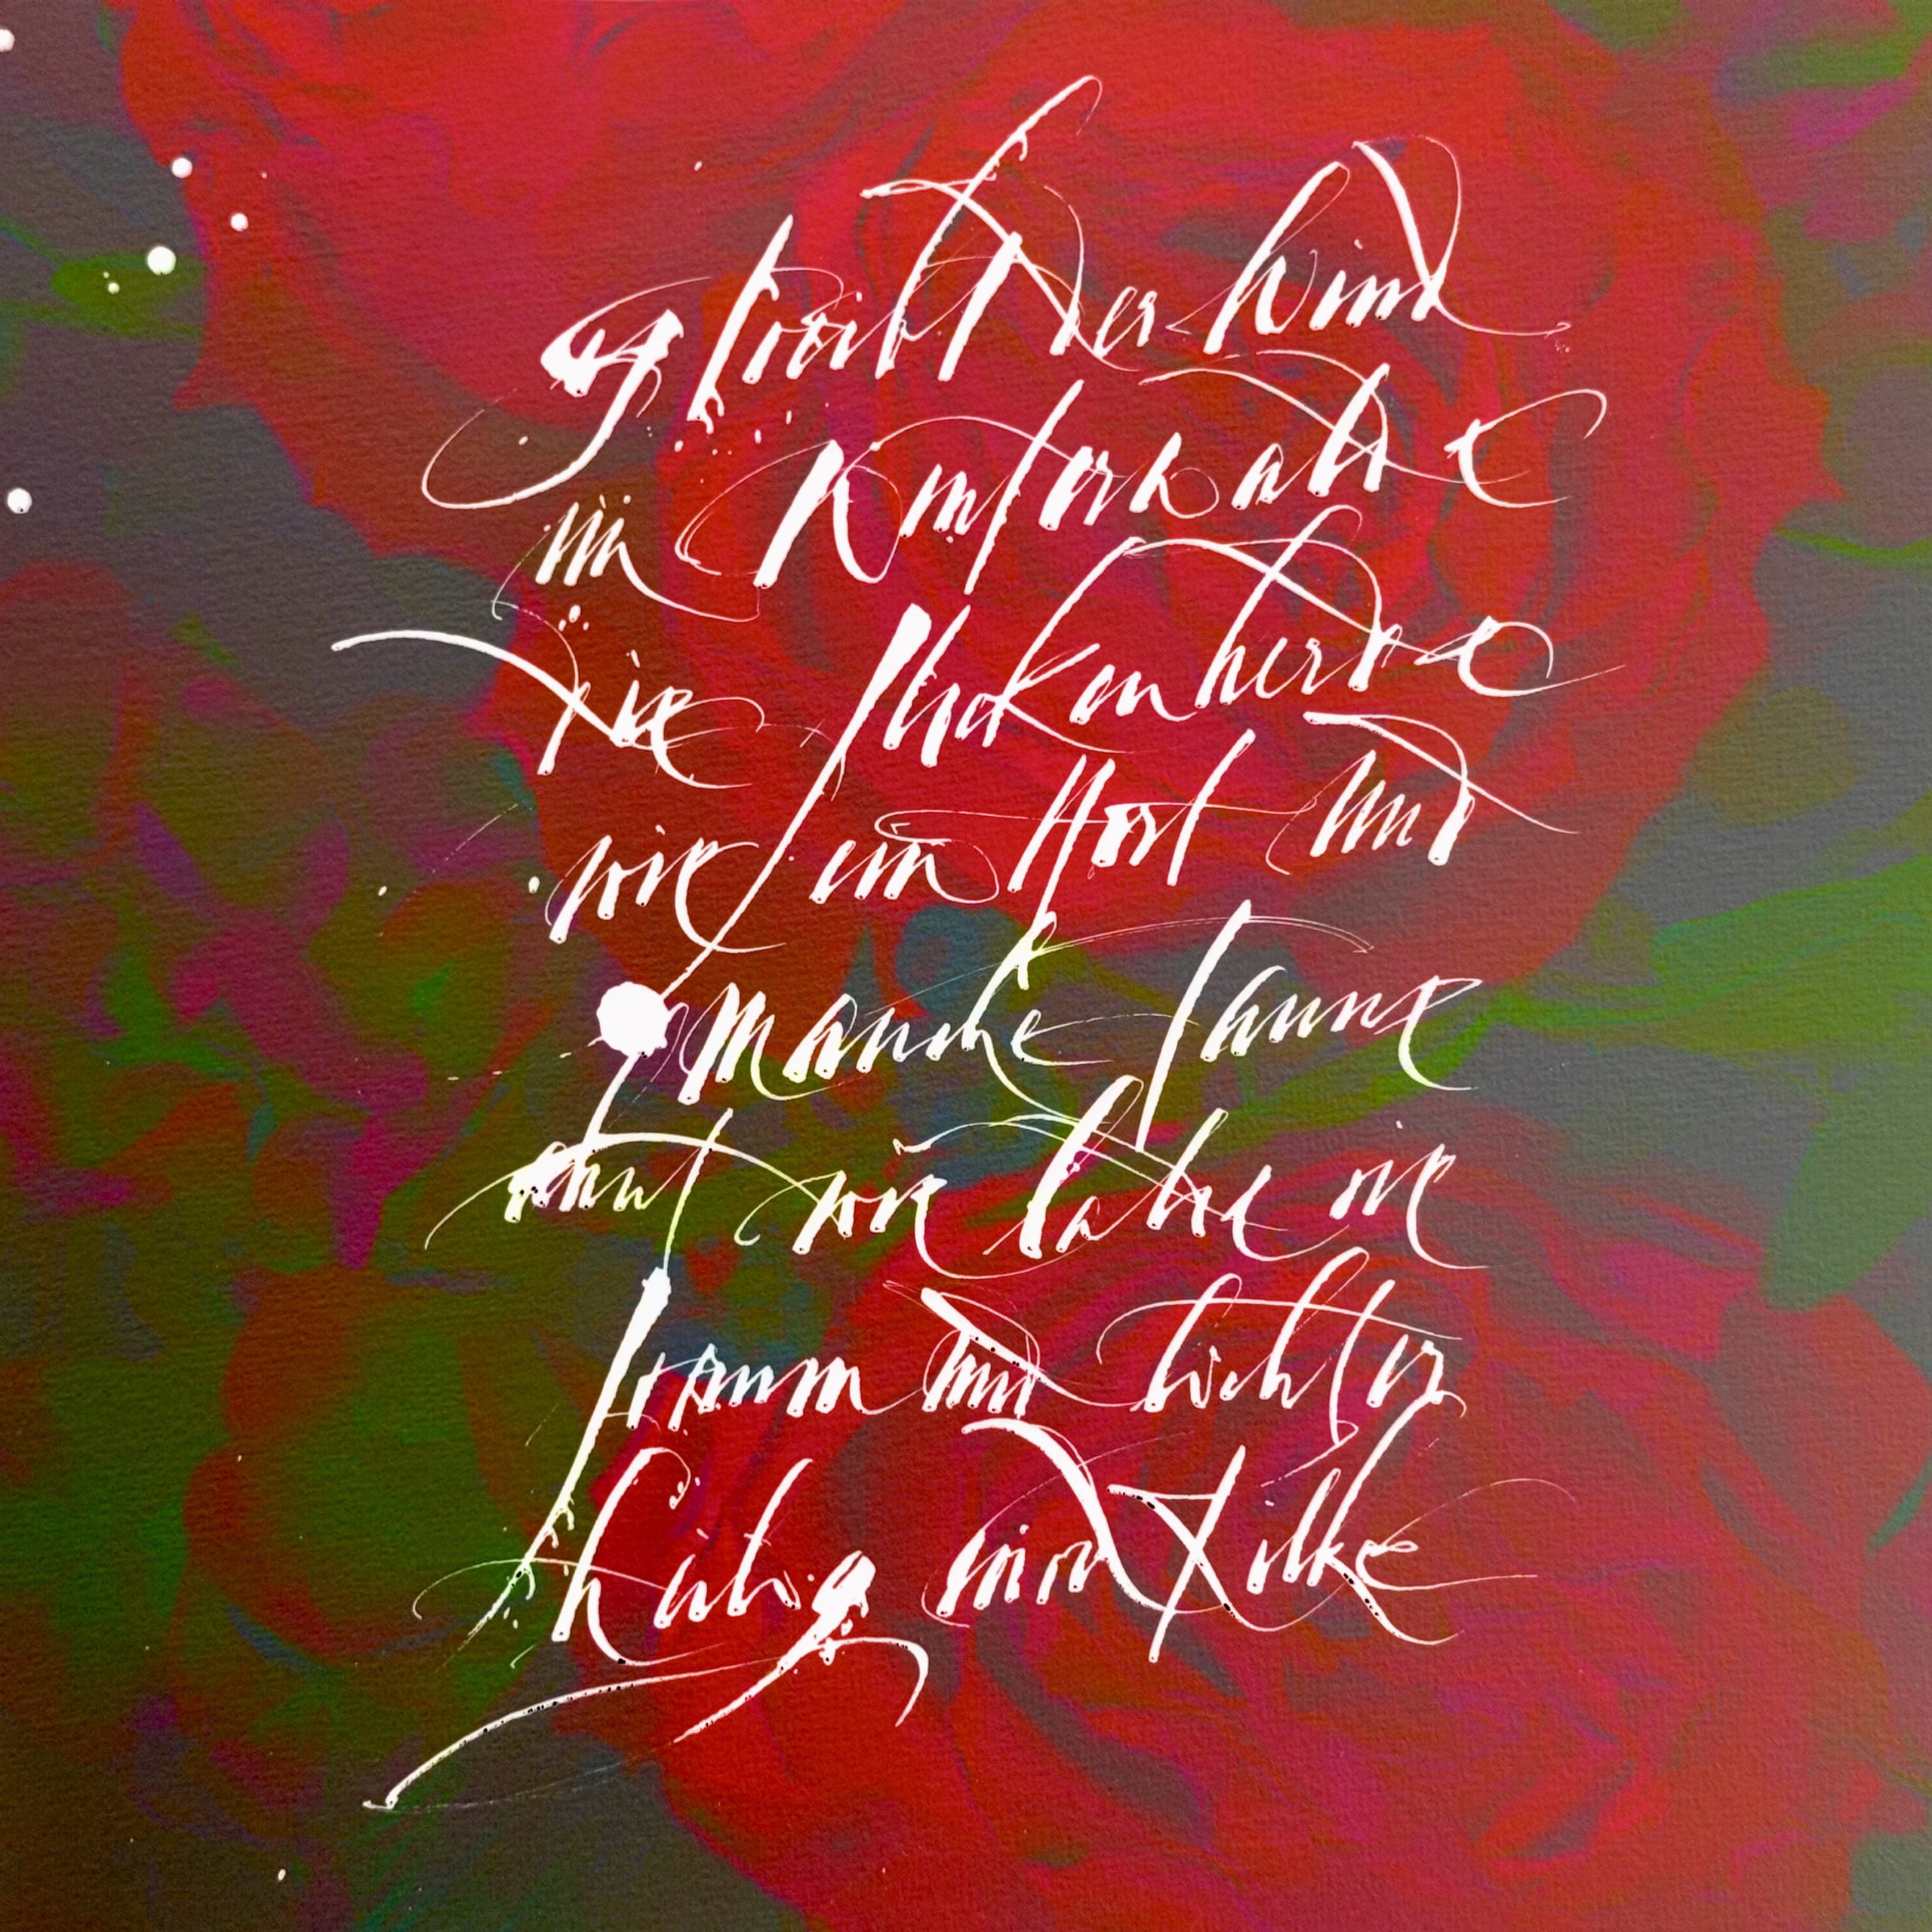 Es treibt der Wind
im Winterwalde
die Flockenherde
wie ein Hirt und
manche Tanne
ahnt wie balde sie
fromm und lichter
heilig wird Rilke